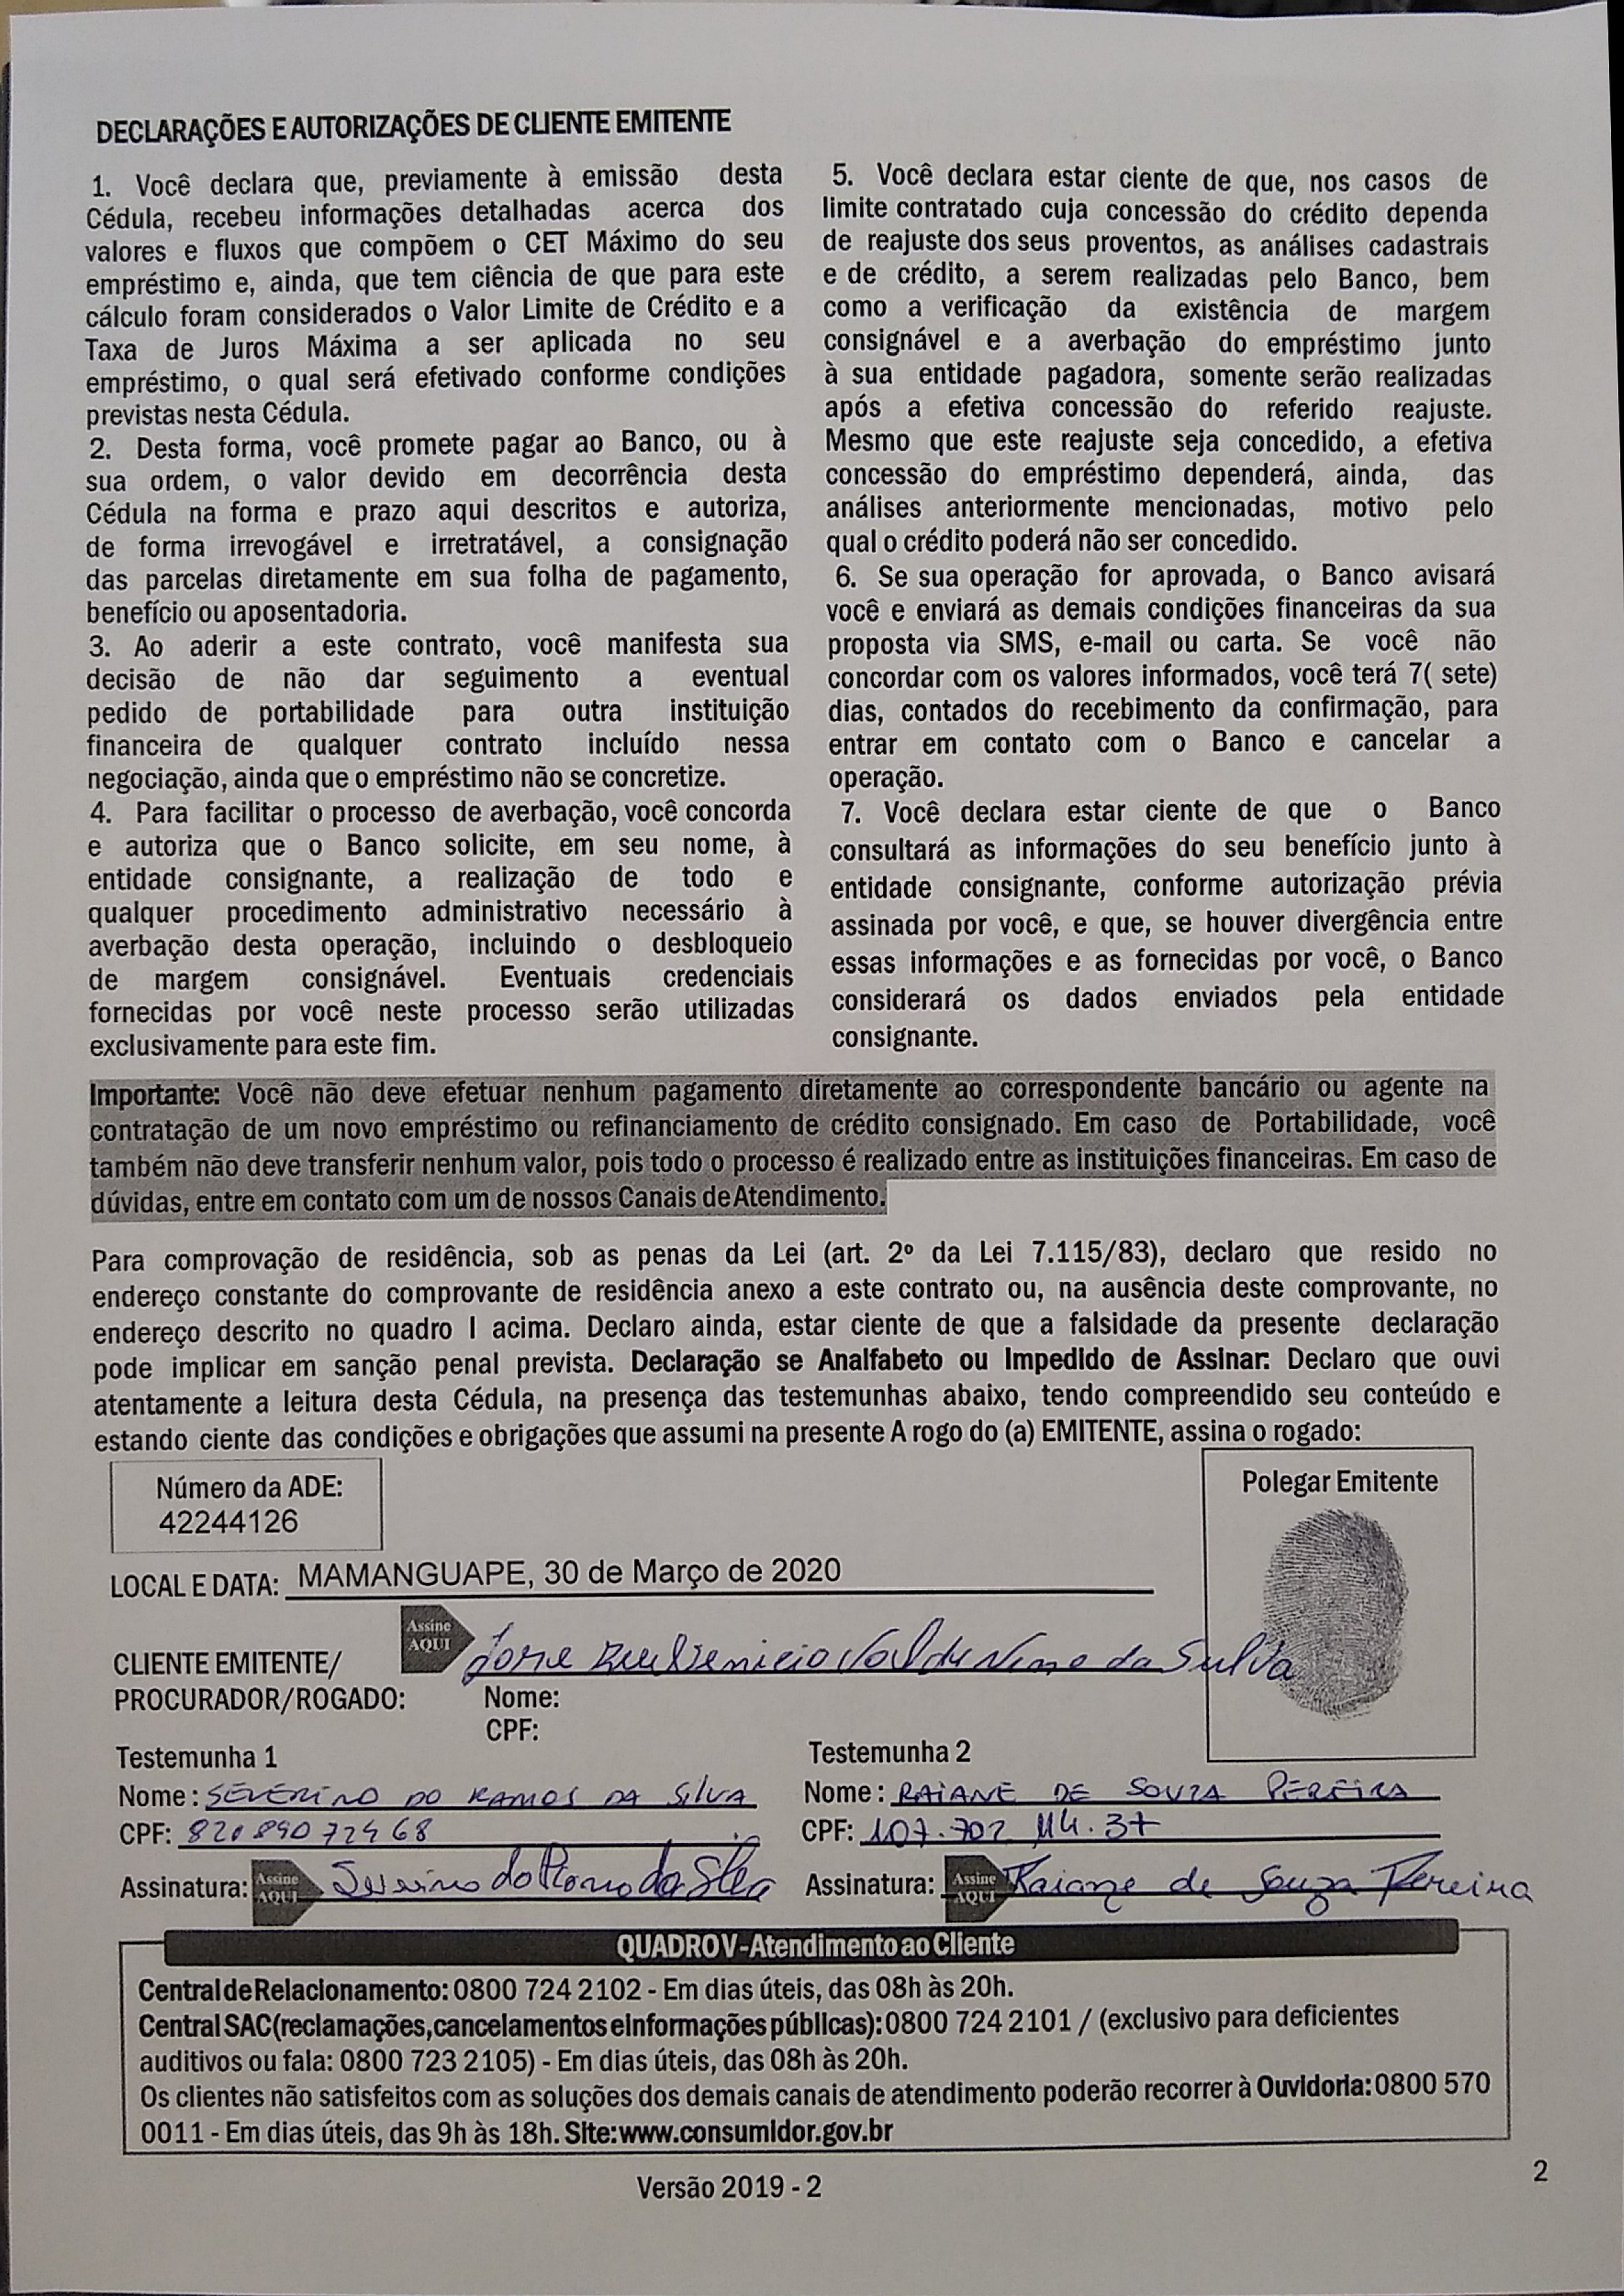 DECLARAÇÕES E AUTORIZAÇÕES DE CLIENTE EMITENTE
1. Você declara que, previamente à emissão desta
Cédula, recebeu informações detalhadas acerca dos
valores e fluxos que compõem o CET Máximo do seu
empréstimo e, ainda, que tem ciência de que para este
cálculo foram considerados o Valor Limite de Crédito e a
Taxa de Juros Máxima a ser aplicada no seu
empréstimo, o qual será efetivado conforme condições
previstas nesta Cédula.
2. Desta forma, você promete pagar ao Banco, ou à
sua ordem, o valor devido em decorrência desta
Cédula na forma e prazo aqui descritos e autoriza,
de forma irrevogável e irretratável, a consignação
das parcelas diretamente em sua folha de pagamento,
benefício ou aposentadoria.
3. Ao aderir a este contrato, você manifesta sua
decisão de não dar seguimento a eventual
pedido de portabilidade para outra instituição
financeira de qualquer contrato incluído nessa
negociação, ainda que o empréstimo não se concretize.
4. Para facilitar o processo de averbação, você concorda
e autoriza que o Banco solicite, em seu nome, à
entidade consignante, a realização de todo e
qualquer procedimento administrativo necessário à
averbação desta operação, incluindo o desbloqueio
de margem consignável. Eventuais credenciais
fornecidas por você neste processo serão utilizadas
exclusivamente para este fim.
5. Você declara estar ciente de que, nos casos de
limite contratado cuja concessão do crédito dependa
de reajuste dos seus proventos, as análises cadastrais
e de crédito, a serem realizadas pelo Banco, bem
como a verificação da existência de margem
consignável e a averbação do empréstimo junto
à sua entidade pagadora, somente serão realizadas
após a efetiva concessão do referido reajuste.
Mesmo que este reajuste seja concedido, a efetiva
concessão do empréstimo dependerá, ainda, das
análises anteriormente mencionadas, motivo pelo
qual o crédito poderá não ser concedido.
6. Se sua operação for aprovada, o Banco avisará
você e enviará as demais condições financeiras da sua
proposta via SMS, e-mail ou carta. Se você não
concordar com os valores informados, você terá 7( sete)
dias, contados do recebimento da confirmação, para
entrar em contato com o Banco e cancelar a
operação.
7. Você declara estar ciente de que o Banco
consultará as informações do seu benefício junto à
entidade consignante, conforme autorização prévia
assinada por você, e que, se houver divergência entre
essas informações e as fornecidas por você, o Banco
considerará os dados enviados pela entidade
consignante.
Importante: Você não deve efetuar nenhum pagamento diretamente ao correspondente bancário ou agente na
contratação de um novo empréstimo ou refinanciamento de crédito consignado. Em caso de Portabilidade, você
também não deve transferir nenhum valor, pois todo o processo é realizado entre as instituições financeiras. Em caso de
dúvidas, entre em contato com um de nossos Canais de Atendimento.
Para comprovação de residência, sob as penas da Lei (art. 2º da Lei 7.115/83), declaro que resido no
endereço constante do comprovante de residência anexo a este contrato ou, na ausência deste comprovante, no
endereço descrito no quadro I acima. Declaro ainda, estar ciente de que a falsidade da presente declaração
pode implicar em sanção penal prevista. Declaração se Analfabeto ou Impedido de Assinar: Declaro que ouvi
atentamente a leitura desta Cédula, na presença das testemunhas abaixo, tendo compreendido seu conteúdo e
estando ciente das condições e obrigações que assumi na presente A rogo do (a) EMITENTE, assina o rogado:
Número da ADE:
42244126
Polegar Emitente
LOCAL E DATA: MAMANGUAPE, 30 de Março de 2020
Assine
AQUI
CLIENTE EMITENTE/
PROCURADOR/ROGADO:
da Silva
Nome:
CPF:
Testemunha 1
Nome: SEVERINO DO RAMOS DA SILVA
CPF: 82089072468
Assinatura: Assine AQUI
Testemunha 2
Nome: RAIANE DE SOUZA PEREIRA
CPF: 107.702 114.37
Assinatura: Assine AQUI Raiane de Souza Pereira
QUADRO V - Atendimento ao Cliente
Central de Relacionamento: 0800 724 2102 - Em dias úteis, das 08h às 20h.
Central SAC (reclamações, cancelamentos e informações públicas): 0800 724 2101 / (exclusivo para deficientes
auditivos ou fala: 0800 723 2105) - Em dias úteis, das 08h às 20h.
Os clientes não satisfeitos com as soluções dos demais canais de atendimento poderão recorrer à Ouvidoria: 0800 570
0011 - Em dias úteis, das 9h às 18h. Site: www.consumidor.gov.br
Versão 2019 - 2
2